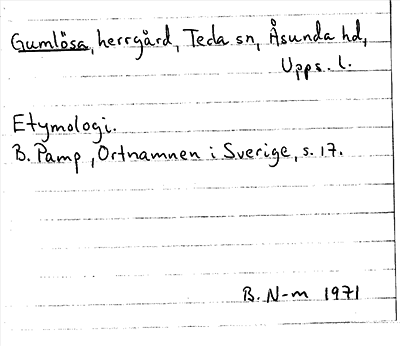 Gumlösa, herrgård, Teda sn, Åsunda hd,
Upps. l.
Etymologi.
B. Pamp, Ortnamnen i Sverige, s. 17.
B. N-m 1971